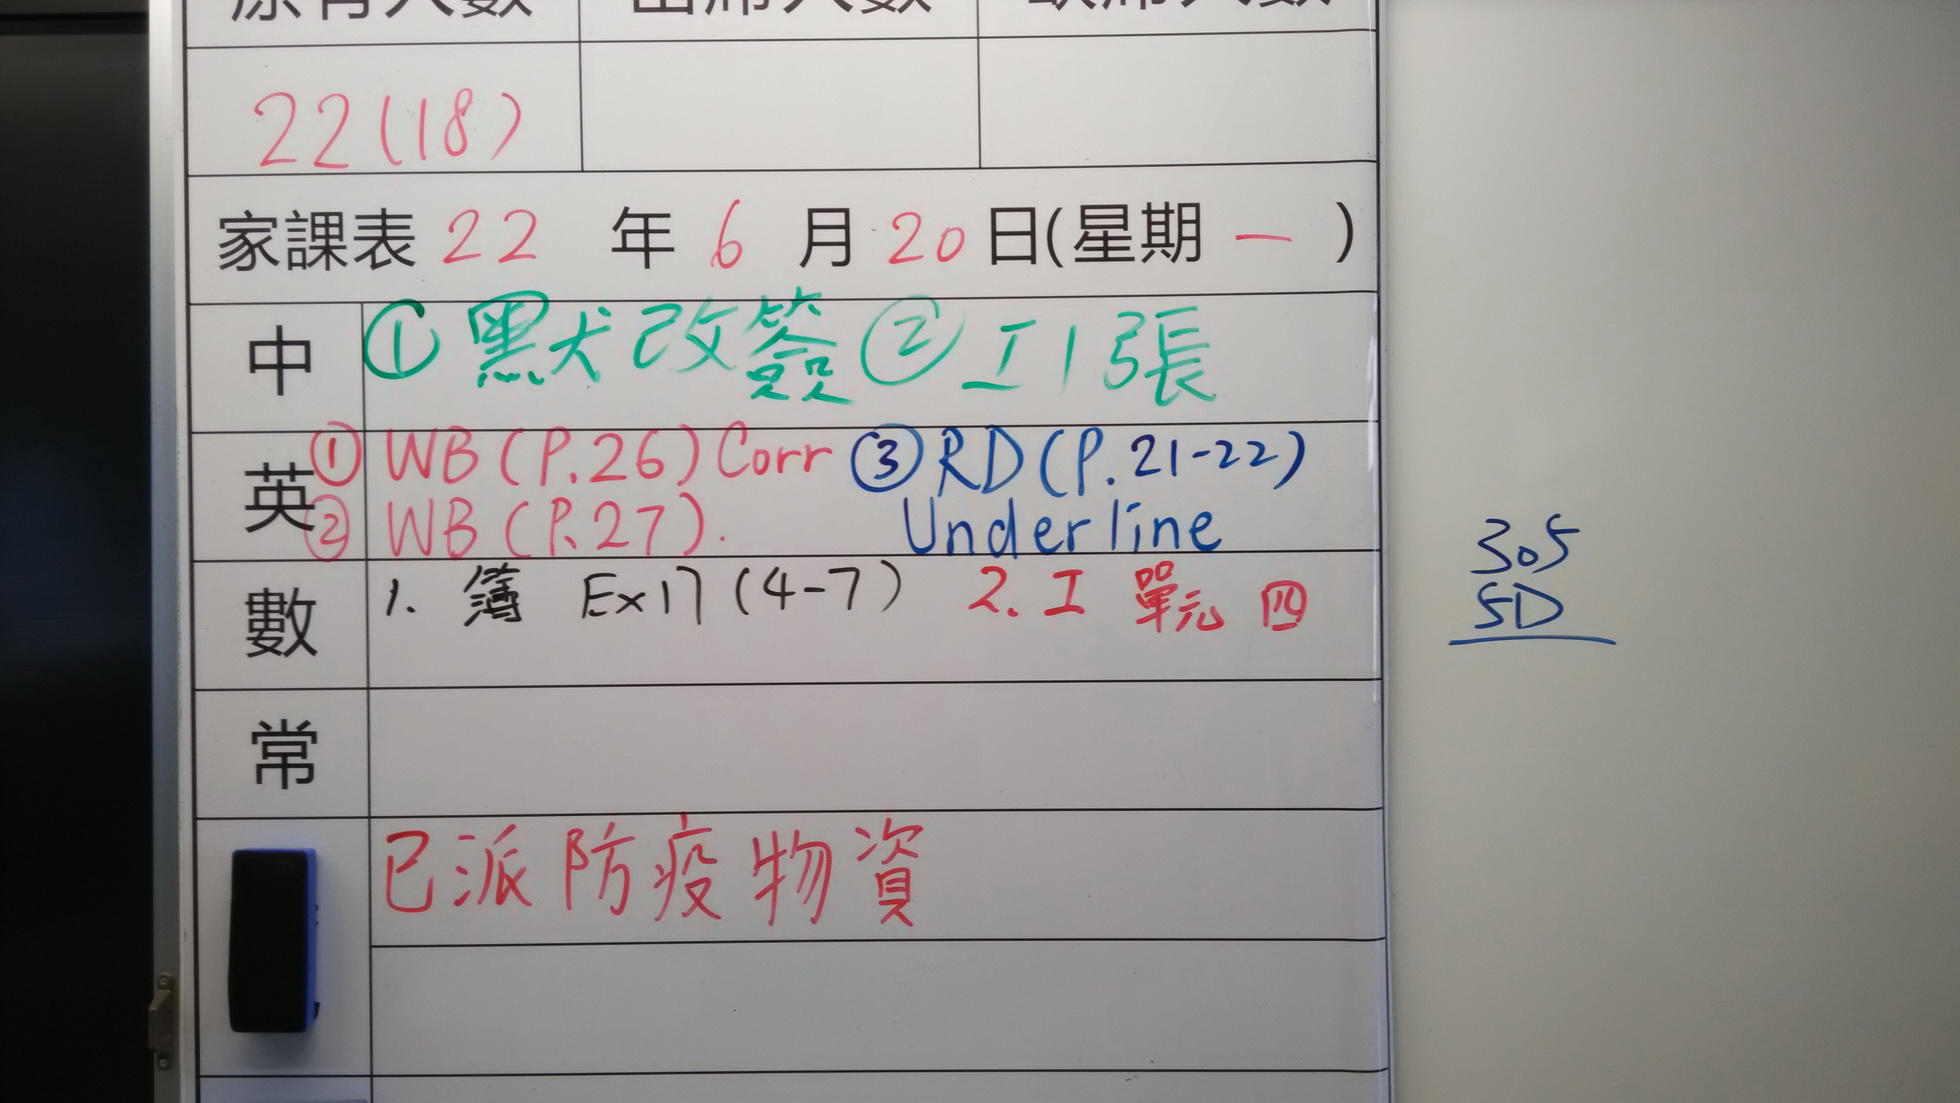 原有人數 出席人數 缺席人數
22(18)
家課表 22 年 6 月 20 日(星期 一 )
中 ① 默改簽 ② 工1張
英 ① WB (P.26) Corr ③ RD (P.21-22)
② WB (P.27). Underline
數 1. 簿 Ex17 (4-7) 2. 工 單元 四
常
已派防疫物資
305
5D